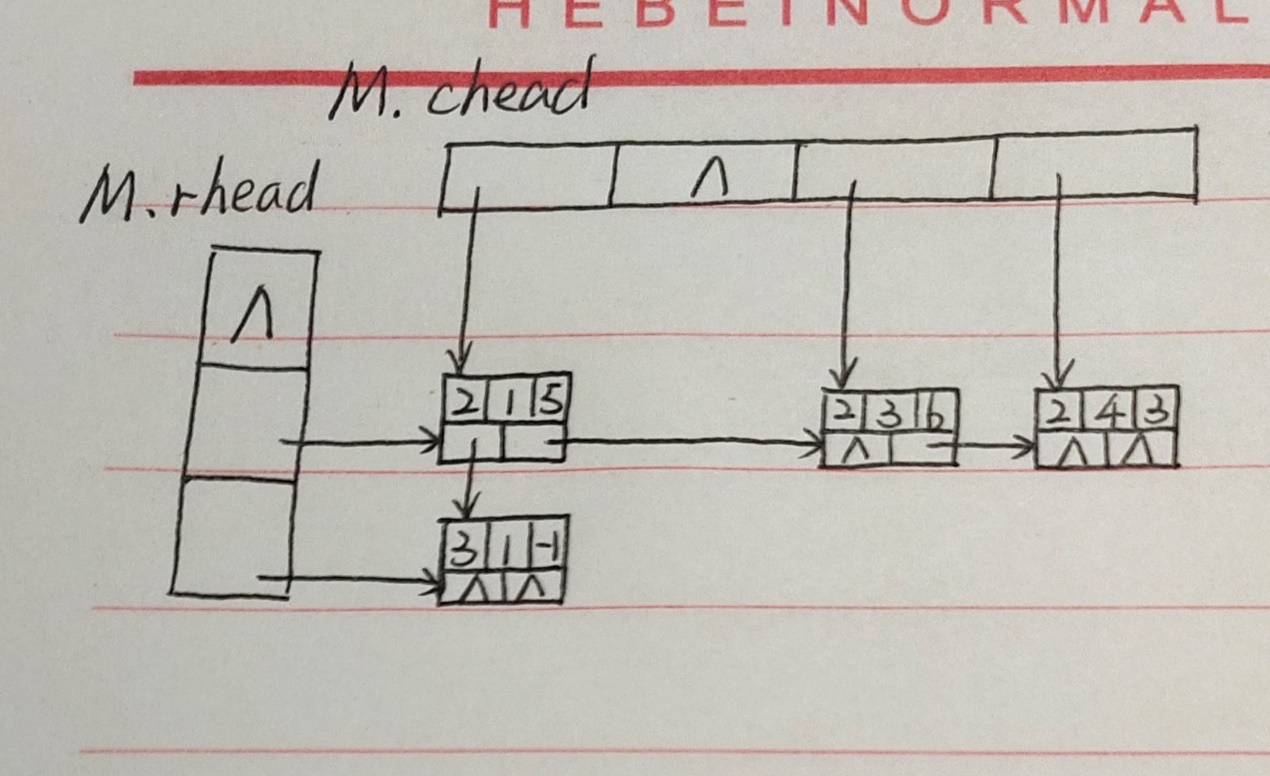 HEBEINORMAL
M. chead
M. rhead
∧
∧
2 1 5
2 3 6
2 4 3
∧
∧ ∧
3 1 -1
∧ ∧